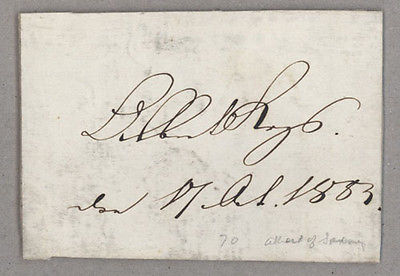 Albert
den 17 Oct. 1883.
70 Albert of Saxony